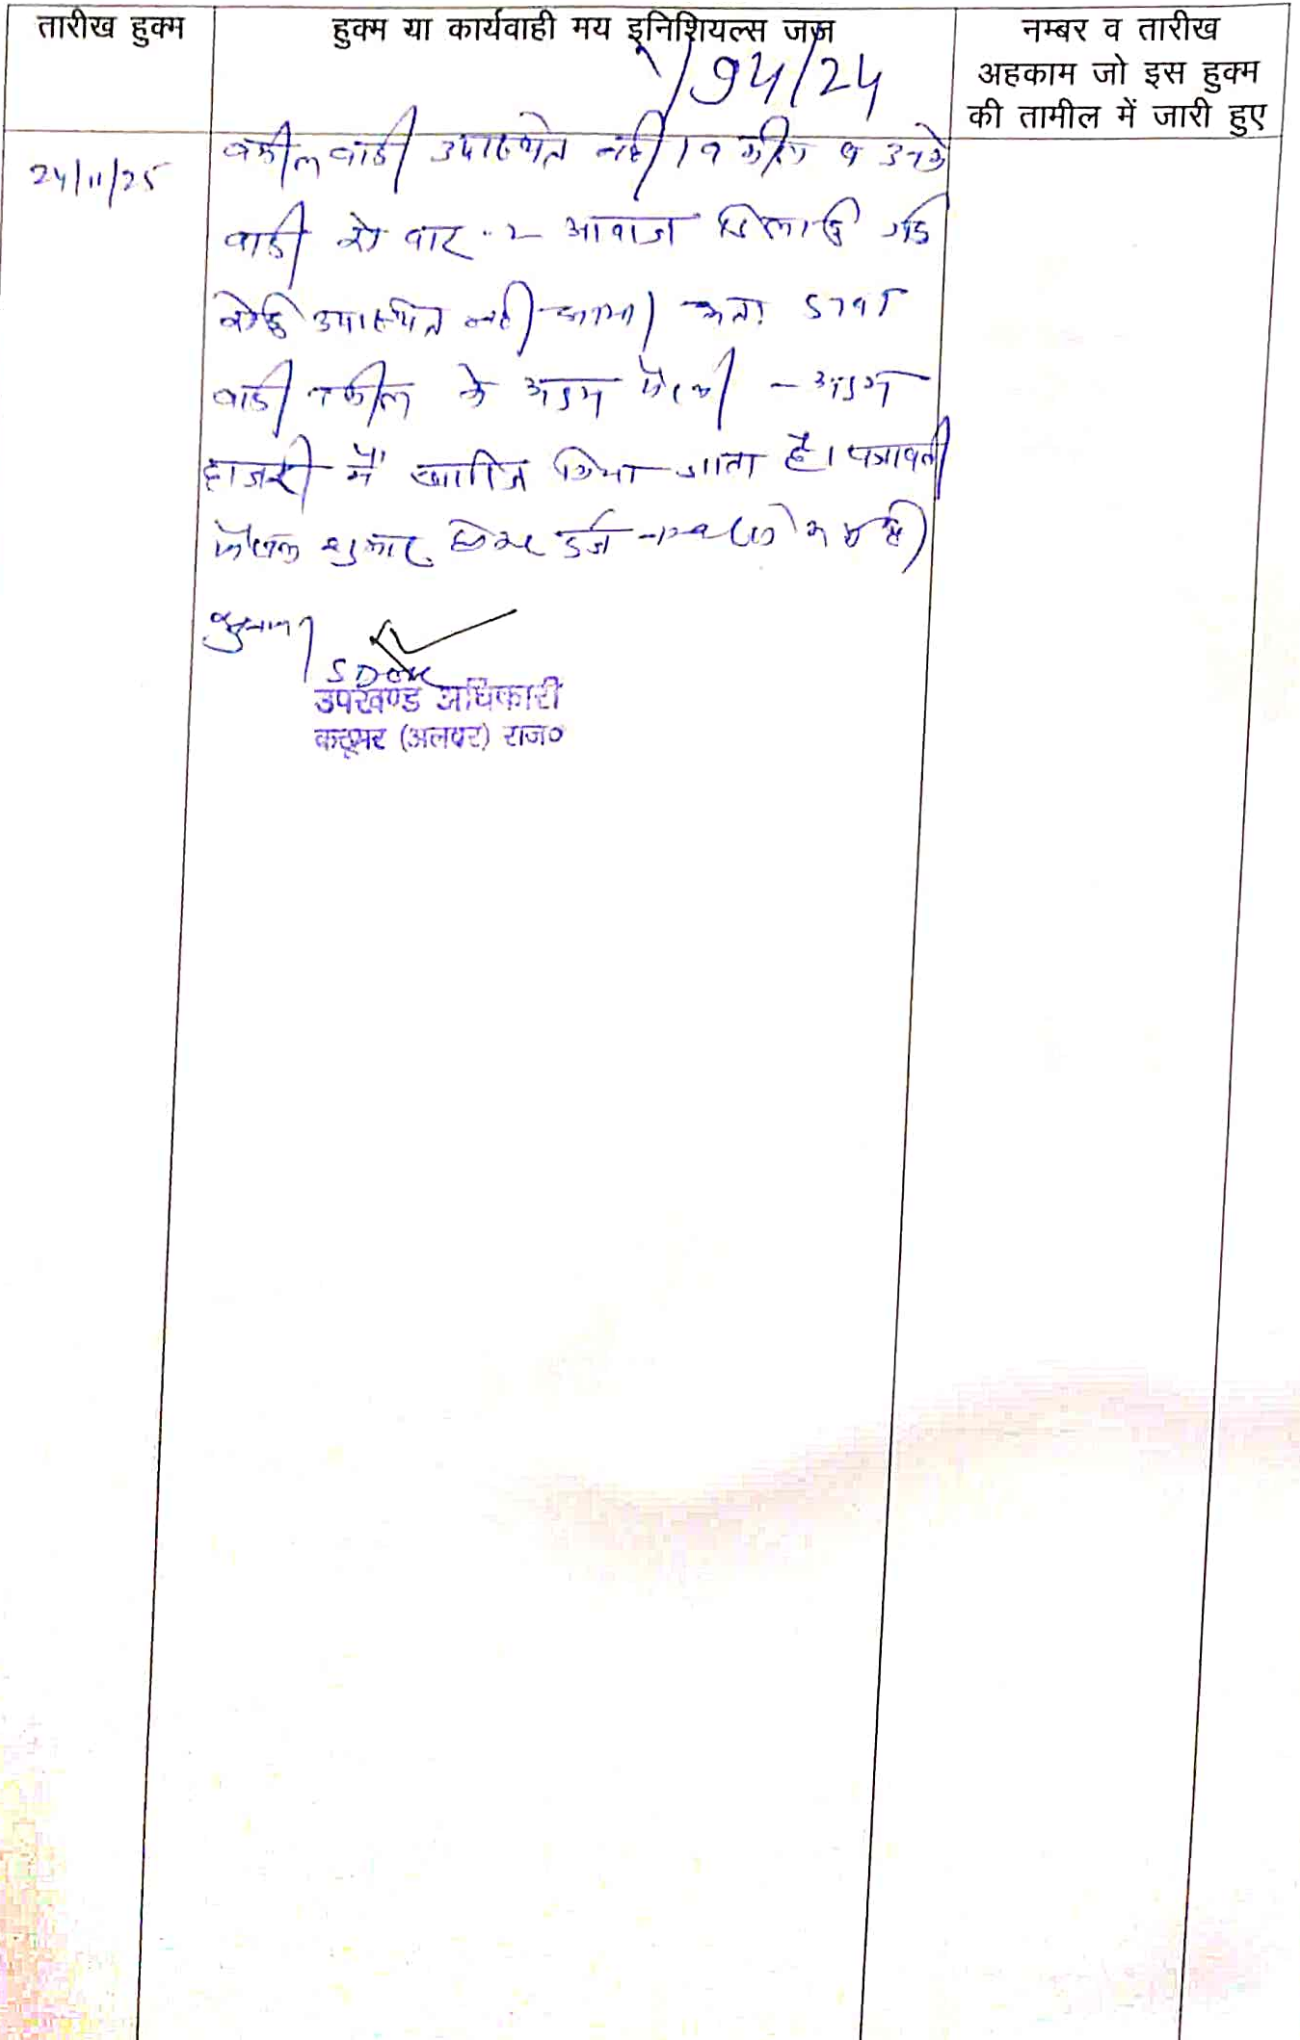 तारीख हुक्म
हुक्म या कार्यवाही मय इनिशियल्स जज
नम्बर व तारीख
अहकाम जो इस हुक्म
की तामील में जारी हुए
94/24
24/11/25
वकील वादी उपस्थित नही। वकील व उनके
वादी को बार-२ आवाज दिलाई गई
कोई उपस्थित नही आया। अतः दावा
वादी वकील के अदम पैरवी - अदम
हाजरी में खारिज किया जाता है। पत्रावली
फैसल शुमार होकर दर्ज
SDO
उपखण्ड अधिकारी
कठूमर (अलवर) राज०